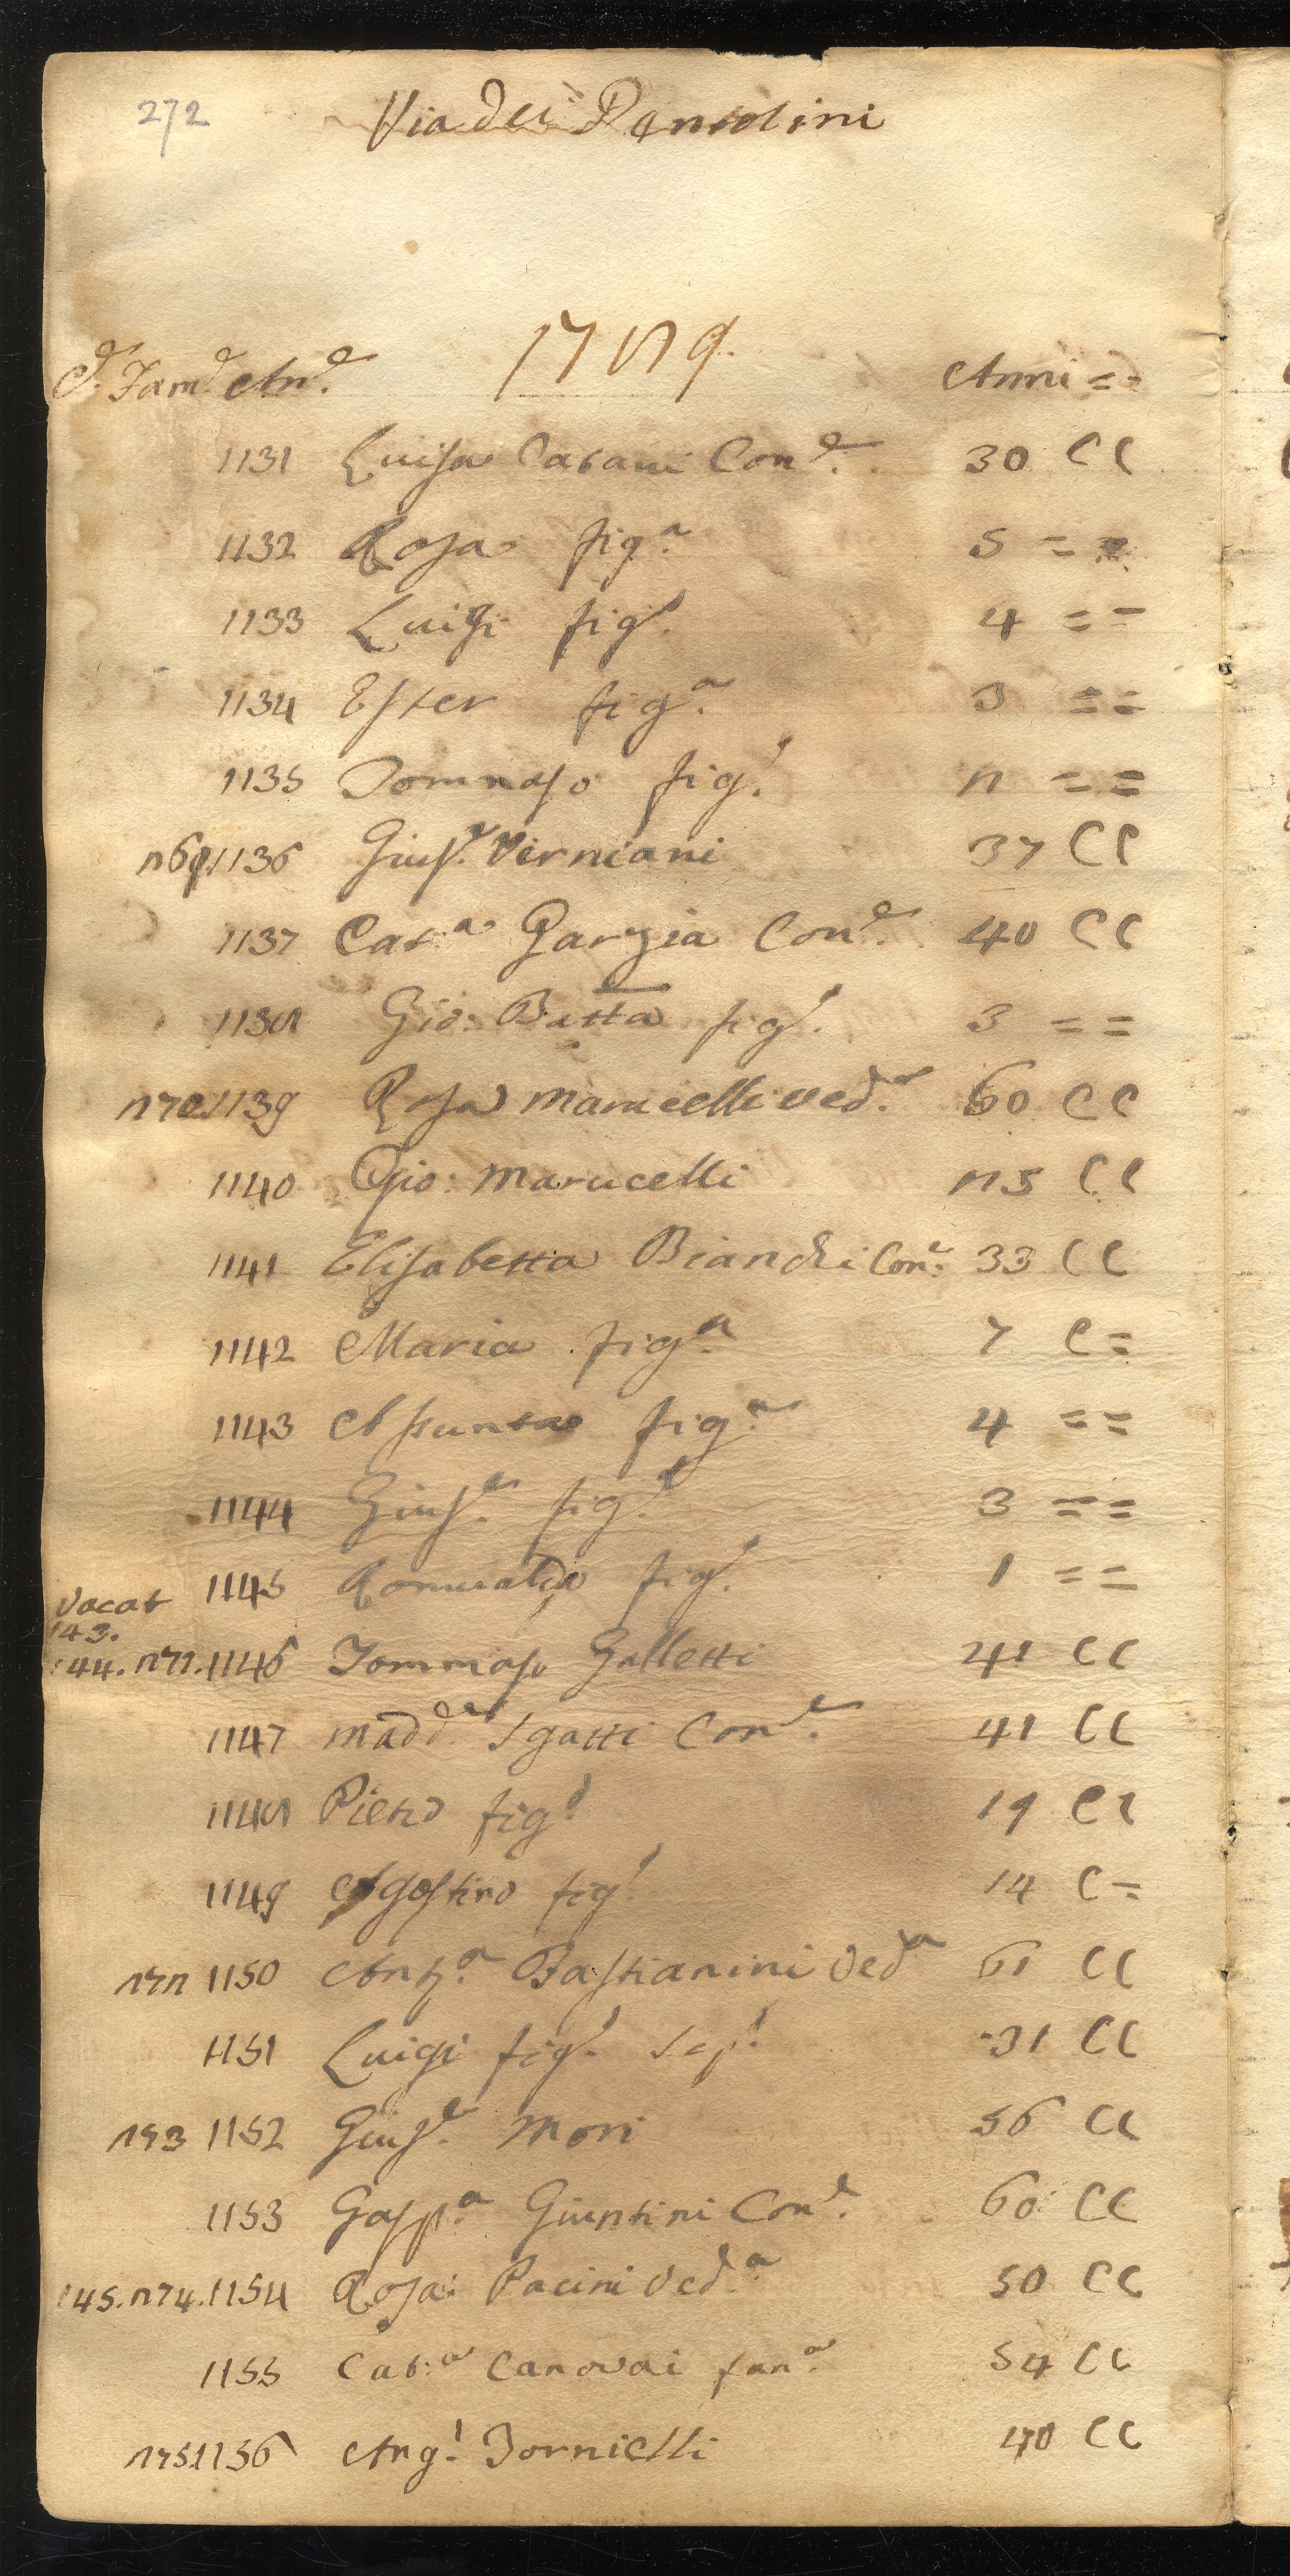 272
Via dei Pentolini
1789.
C. Fam.e An.e Anni = =
1131 Luisa Catani Con.e 30 C C
1132 Rosa fig.a 5 = =
1133 Luigi fig.o 4 = =
1134 Ester fig.a 3 = =
1135 Tommaso fig.o 2 = =
269.1136 Gius.e Verniani 37 C C
1137 Cat.a Garzia Con.e 40 C C
1138 Gio: Batta fig.o 3 = =
270.1139 Rosa Marucelli ved.a 60 C C
1140 Gio: Marucelli 25 C C
1141 Elisabetta Bianchi Con.e 33 C C
1142 Maria fig.a 7 C =
1143 Assunta fig.a 4 = =
1144 Gius.e fig.o 3 = =
1145 Romualdo fig.o 1 = =
Vacat
143.
144. 271. 1146 Tommaso Galletti 41 C C
1147 Madd.a Sgatti Con.e 41 C C
1148 Pietro fig.o 19 C C
1149 Agostino fig.o 14 C =
272 1150 Anna Bastianini Ved.a 61 C C
1151 Luigi fig.o 31 C C
273 1152 Gius.e Mori 56 C C
1153 Gasp.a Giuntini Con.e 60 C C
145. 274. 1154 Rosa Pacini Ved.a 50 C C
1155 Cat.a Canovai fan.a 54 C C
275.1156 Ang.o Tornielli 40 C C